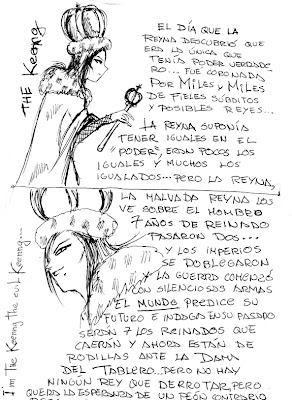 THE Keenng
EL DÍA QUE LA
REYNA DESCUBRIÓ QUE
ERA LA ÚNICA QUE
TENÍA PODER VERDADE
RO... FUE CORONADA
POR MILES Y MILES
DE FIELES SÚBDITOS
Y POSIBLES REYES...
LA REYNA SUPONÍA
TENER IGUALES EN EL
"PODER", ERAN POCOS LOS
IGUALES Y MUCHOS LOS
IGUALADOS... PERO LA REYNA,
I'm The Keenng the evil Keenng...
LA MALVADA REYNA LOS
VE SOBRE EL HOMBRO
7 AÑOS DE REINADO
PASARON DOS...
Y LOS IMPERIOS
SE DOBLEGARON
Y LA GUERRA COMENZÓ
CON SILENCIOSAS ARMAS
EL MUNDO PREDICE SU
FUTURO E INDAGA EN SU PASADO
SERÁN 7 LOS REINADOS QUE
CAERÁN Y AHORA ESTÁN DE
RODILLAS ANTE LA DAMA
DEL TABLERO... PERO NO HAY
NINGÚN REY QUE DERROTAR, PERO
QUEDA LA ESPERANZA DE UN PEÓN CONTRARIO